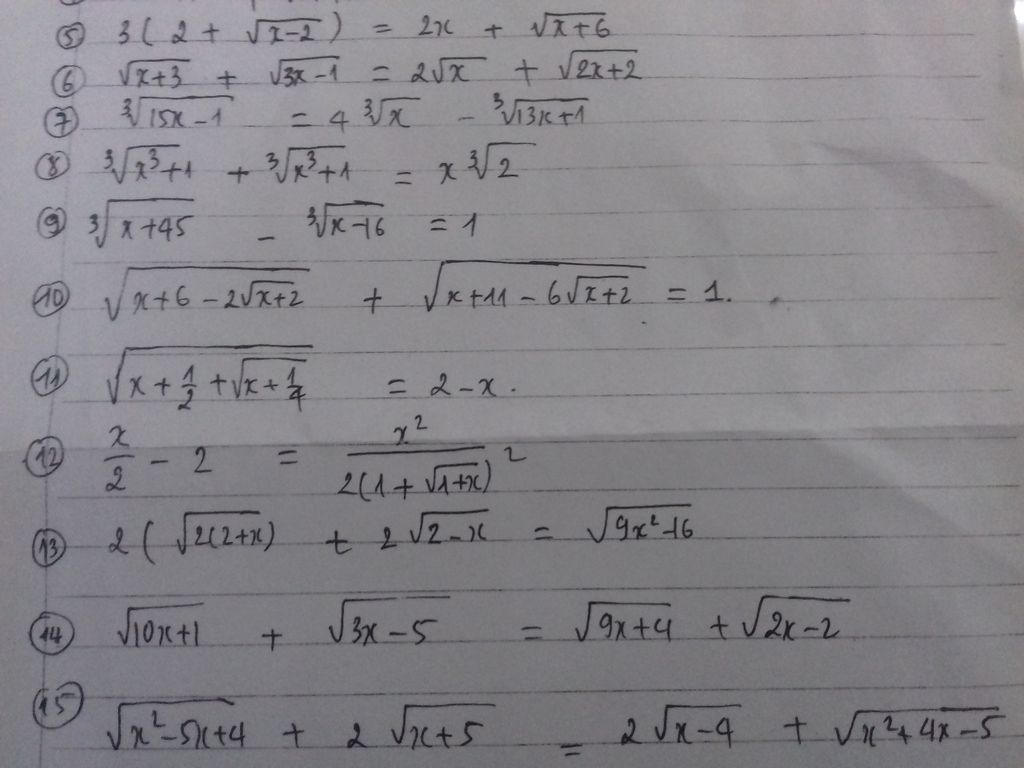 ⑤ 3(2 + √(x-2)) = 2x + √(x+6)
⑥ √(x+3) + √(3x-1) = 2√x + √(2x+2)
⑦ ∛(15x-1) = 4∛x - ∛(13x+1)
⑧ ∛(x³+1) + ∛(x³+1) = x∛2
⑨ ∛(x+45) - ∛(x-16) = 1
⑩ √(x+6-2√(x+2)) + √(x+11-6√(x+2)) = 1.
⑪ √(x + 1/2 + √(x + 1/4)) = 2-x.
⑫ x/2 - 2 = x²/2(1+√(1+x))²
⑬ 2(√(2(2+x)) + 2√(2-x) = √(9x²-16)
⑭ √(10x+1) + √(3x-5) = √(9x+4) + √(2x-2)
⑮ √(x²-5x+4) + 2√(x+5) = 2√(x-4) + √(x²+4x-5)